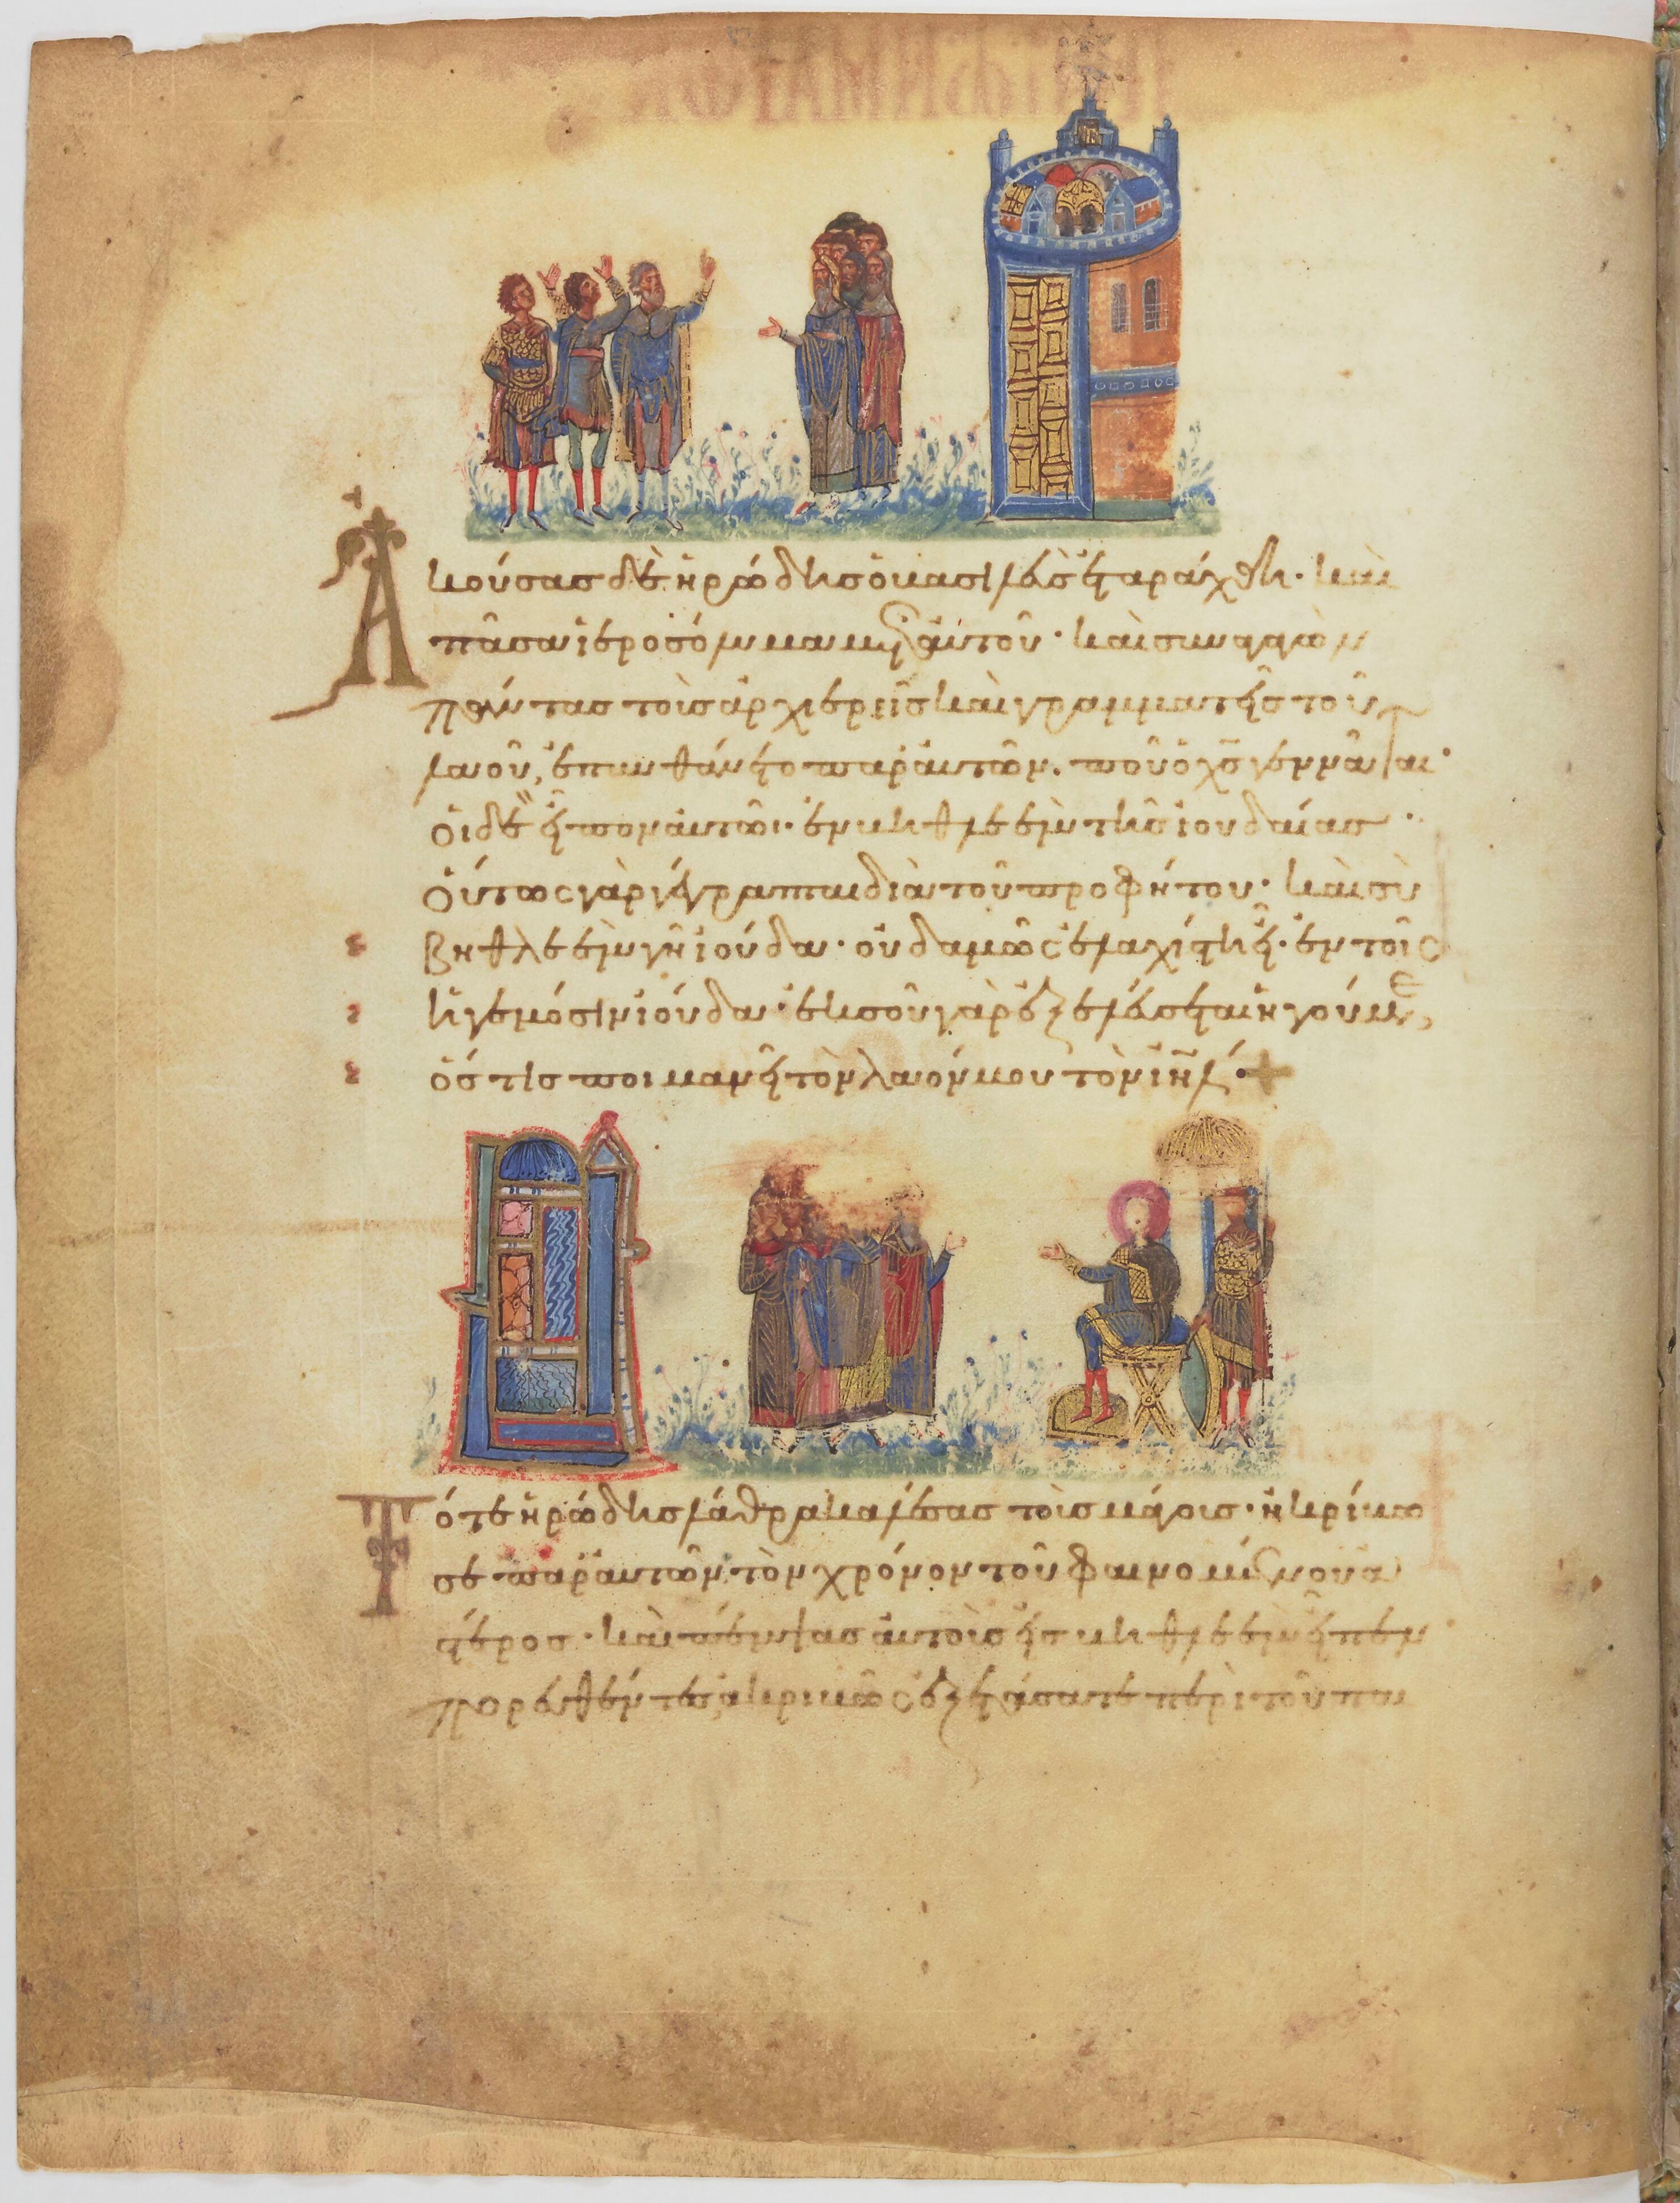 Ἀκούσας δὲ ἡρώδης ὁ βασιλεὺς ἐταράχθη· καὶ
πᾶσα ἱεροσόλυμα μετ αὐτοῦ· καὶ συναγαγὼν
πάντας τοὺς ἀρχιερεῖς καὶ γραμματεῖς τοῦ
λαοῦ, ἐπυνθάνετο παρ αὐτῶν. ποῦ ὁ χς γεννᾶται·
Οἱ δὲ εἶπον αὐτῶ· ἐν βηθλεὲμ τῆς ἰουδαίας·
Οὕτως γὰρ γέγραπται διὰ τοῦ προφήτου· καὶ σὺ
Βηθλεὲμ γῆ ἰούδα· οὐδαμῶς ἐλαχίστη εἶ· ἐν τοῖς
ἡγεμόσιν ἰούδα· ἐκ σοῦ γὰρ ἐξελεύσεται ἡγούμε,
ὅστις ποιμανεῖ τὸν λαόν μου τὸν ιηλ·+
Τότε ἡρώδης λάθρα καλέσας τοὺς μάγους· ἠκρίβω
σε παρ αὐτῶν τὸν χρόνον τοῦ φαινομένου ἀ
στέρος· καὶ πέμψας αὐτοὺς εἰς βηθλεὲμ εἶπεν
πορευθέντες, ἀκριβῶς ἐξετάσατε περὶ τοῦ παι